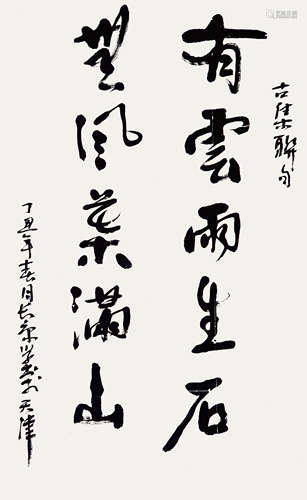 古集聯句
有雲雨生石
無風葉滿山
丁丑年春月於天津